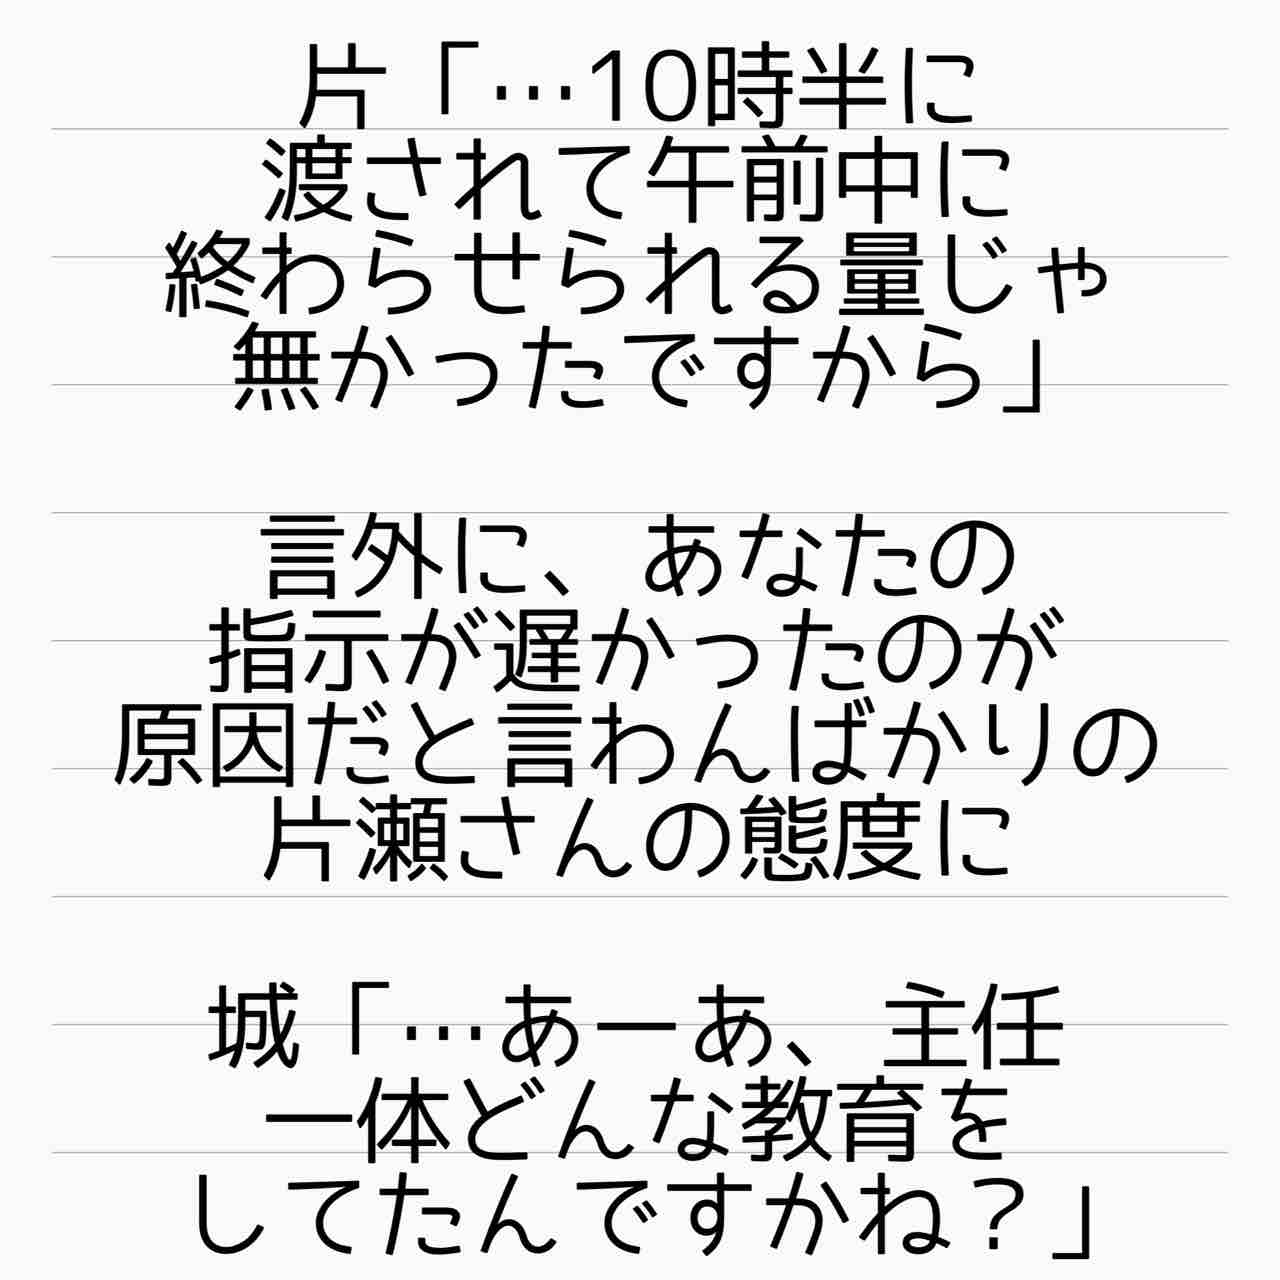 片「…10時半に
渡されて午前中に
終わらせられる量じゃ
無かったですから」
言外に、あなたの
指示が遅かったのが
原因だと言わんばかりの
片瀬さんの態度に
城「…あーあ、主任
一体どんな教育を
してたんですかね？」